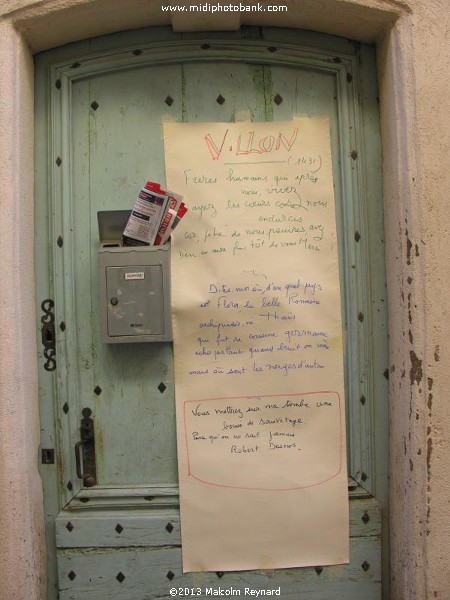 www.midiphotobank.com
VILLON
(1431)
Freres humains qui après
nous vivez
ayez les cœurs contre nous
endurcis
car, pitié de nous pauvres avez
Dieu en aura
tôt de vous
Dites moi où, d'en quel pays
est Flora la belle Romaine
ni Thaïs
qui fut sa cousine germaine
écho parlant quand bruit on
mais où sont les neiges d'antan
Vous mettrez sur ma tombe une
bouée de sauvetage.
Parce qu'on ne sait jamais
Robert Desnos.
©2013 Malcolm Reynard